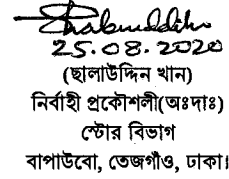 25.08.2020
(ছালাউদ্দিন খান)
নির্বাহী প্রকৌশলী(অঃদাঃ)
স্টোর বিভাগ
বাপাউবো, তেজগাঁও, ঢাকা।